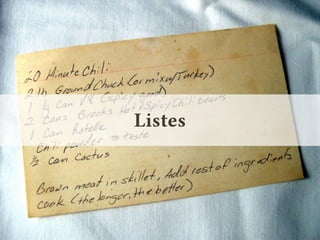 20 Minute Chili
2 lb Ground Chuck (or mix w/Turkey)
1 ½ Can V8 (spicy good)
2 Cans Brooks Hot & Spicy Chili beans
1 Can Rotelle
Chili powder to taste
½ Can Cactus
Listes
Brown meat in skillet, Add rest of ingredients
cook (the longer, the better)